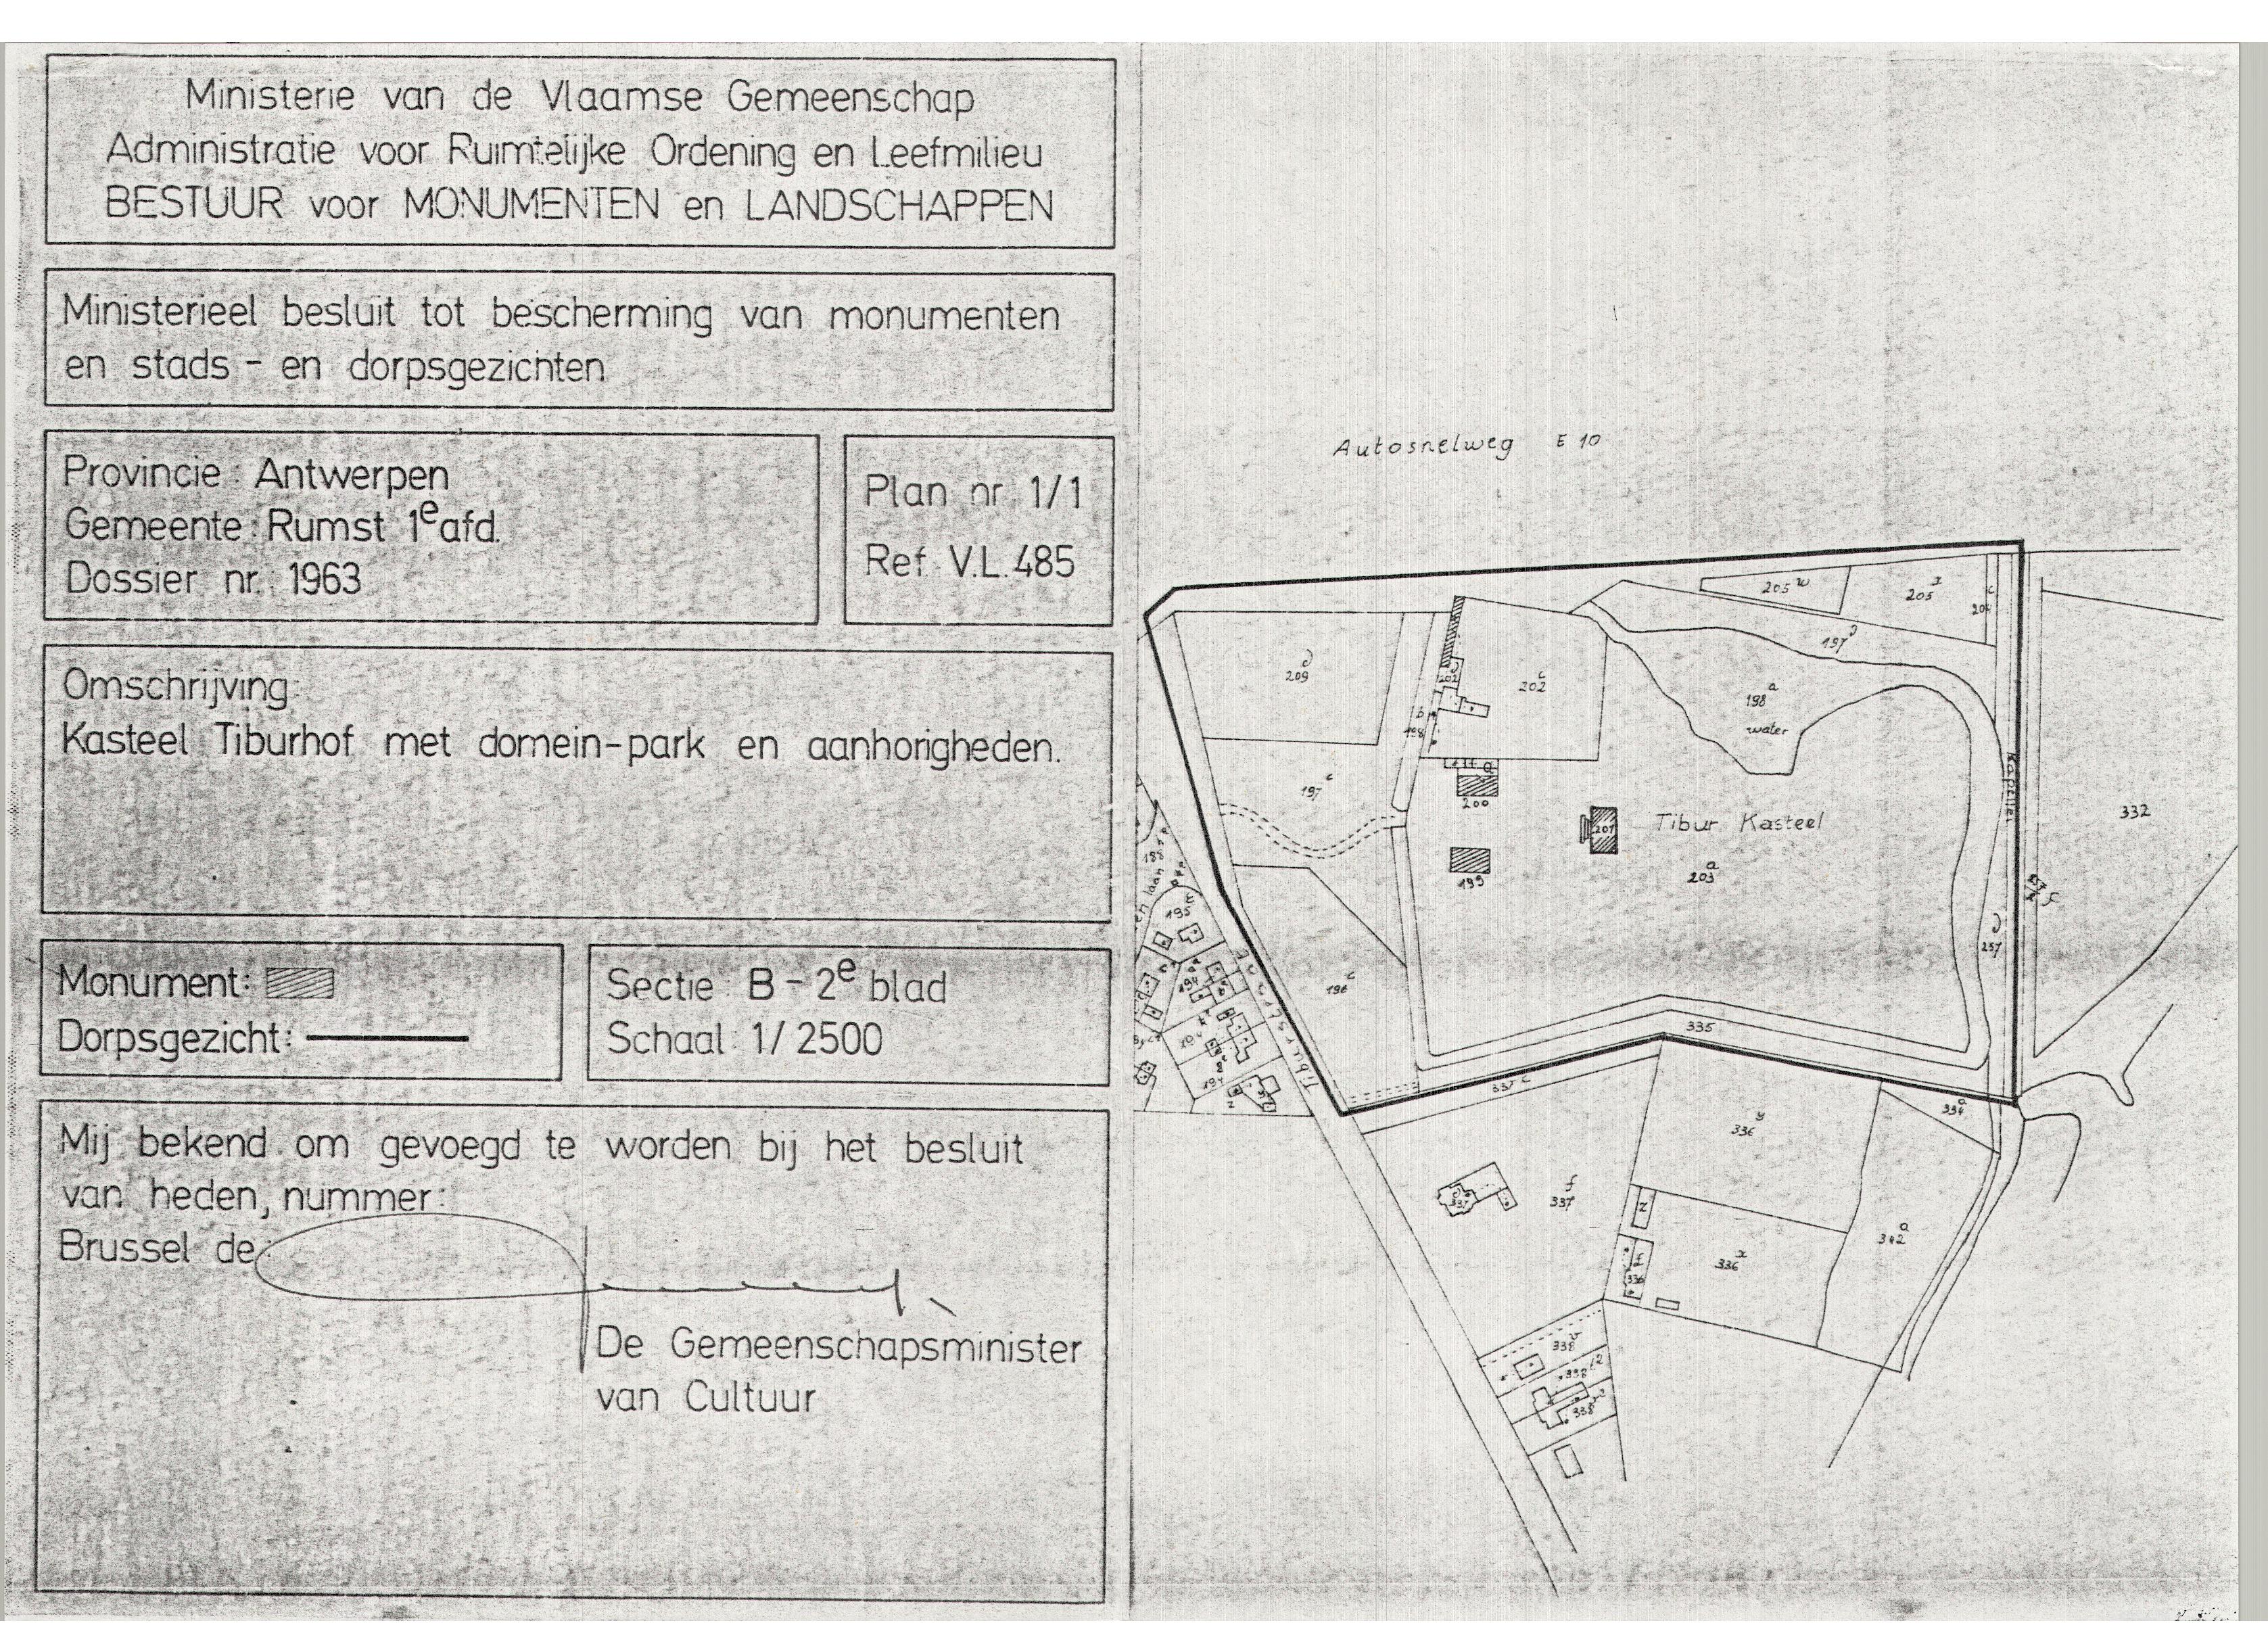 Ministerie van de Vlaamse Gemeenschap
Administratie voor Ruimtelijke Ordening en Leefmilieu
BESTUUR voor MONUMENTEN en LANDSCHAPPEN
Ministerieel besluit tot bescherming van monumenten
en stads - en dorpsgezichten
Provincie : Antwerpen
Gemeente : Rumst 1e afd.
Dossier nr. : 1963
Plan nr 1/1
Ref. V.L. 485
Omschrijving:
Kasteel Tiburhof met domein-park en aanhorigheden.
Monument:
Dorpsgezicht:
Sectie : B - 2e blad
Schaal : 1/ 2500
Mij bekend om gevoegd te worden bij het besluit
van heden, nummer:
Brussel de:
De Gemeenschapsminister
van Cultuur
Autosnelweg E 10
205 w
205 x
204 c
197 d
209 d
202 c
198 a
water
198 b
197 c
200
201
Tibur Kasteel
332
199
203 a
195 t
257 d
196 c
194
335
337 c
334 a
336 y
337 f
Z
336 x
342 a
336 f
338 v
338 t2
338